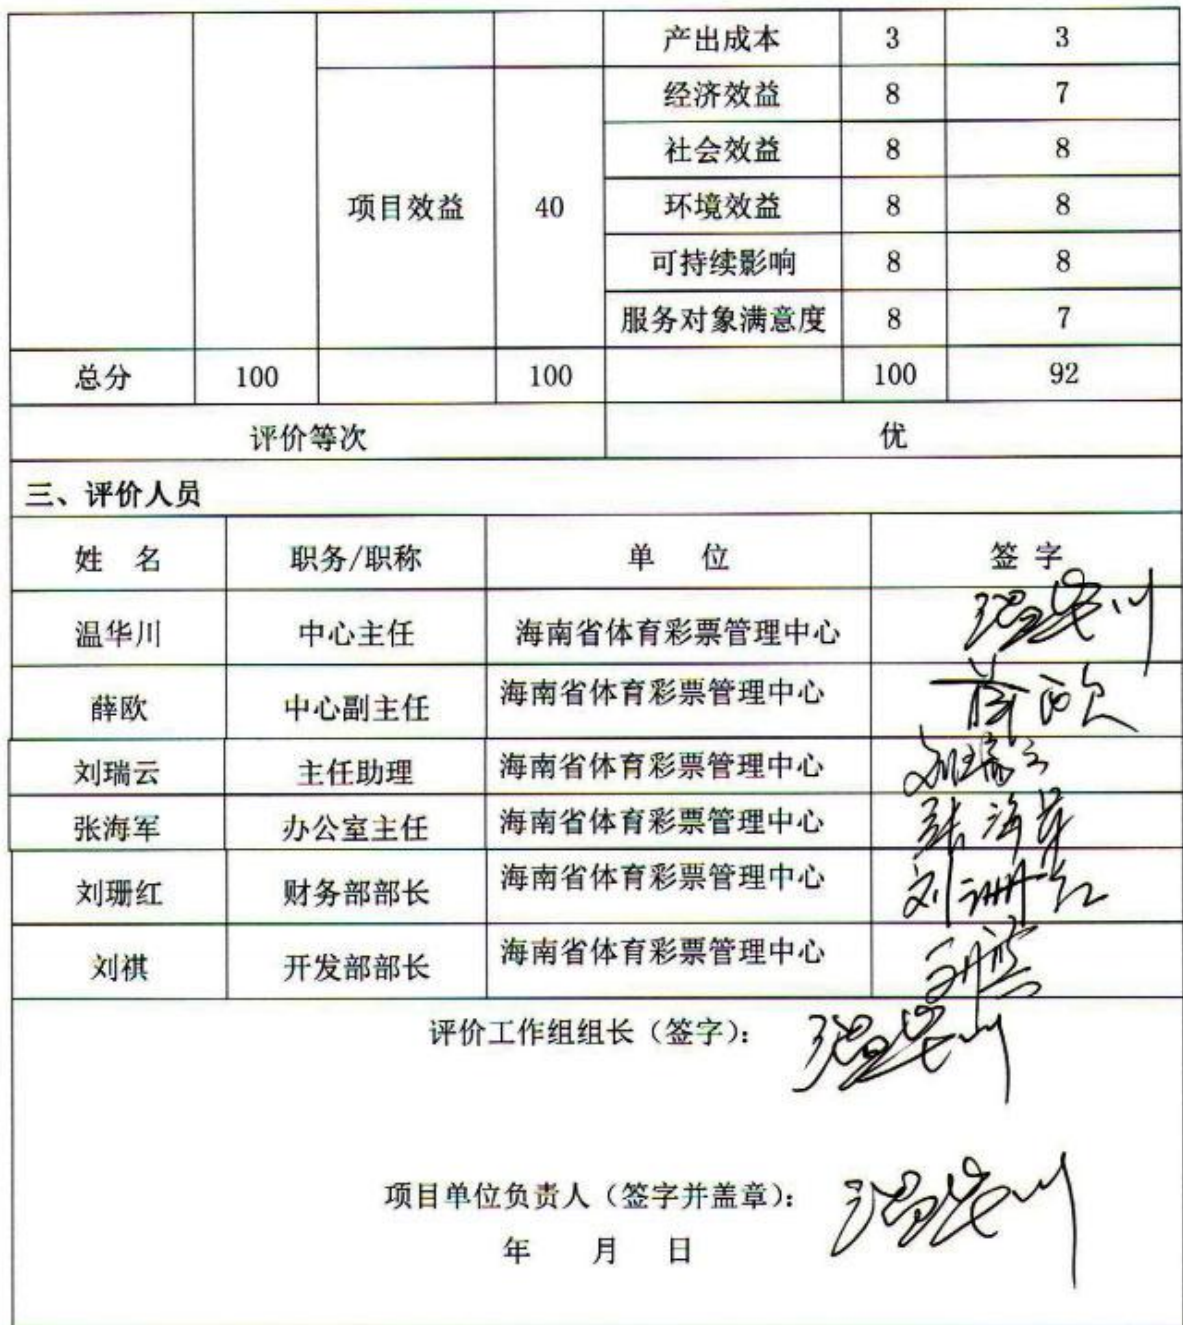 产出成本 3 3
经济效益 8 7
社会效益 8 8
项目效益 40 环境效益 8 8
可持续影响 8 8
服务对象满意度 8 7
总分 100 100 100 92
评价等次 优
三、评价人员
姓 名 职务/职称 单 位 签 字
温华川 中心主任 海南省体育彩票管理中心 温华川
薛欧 中心副主任 海南省体育彩票管理中心 薛欧
刘瑞云 主任助理 海南省体育彩票管理中心 刘瑞云
张海军 办公室主任 海南省体育彩票管理中心 张海军
刘珊红 财务部部长 海南省体育彩票管理中心 刘珊红
刘祺 开发部部长 海南省体育彩票管理中心
评价工作组组长（签字）： 温华川
项目单位负责人（签字并盖章）： 温华川
年 月 日